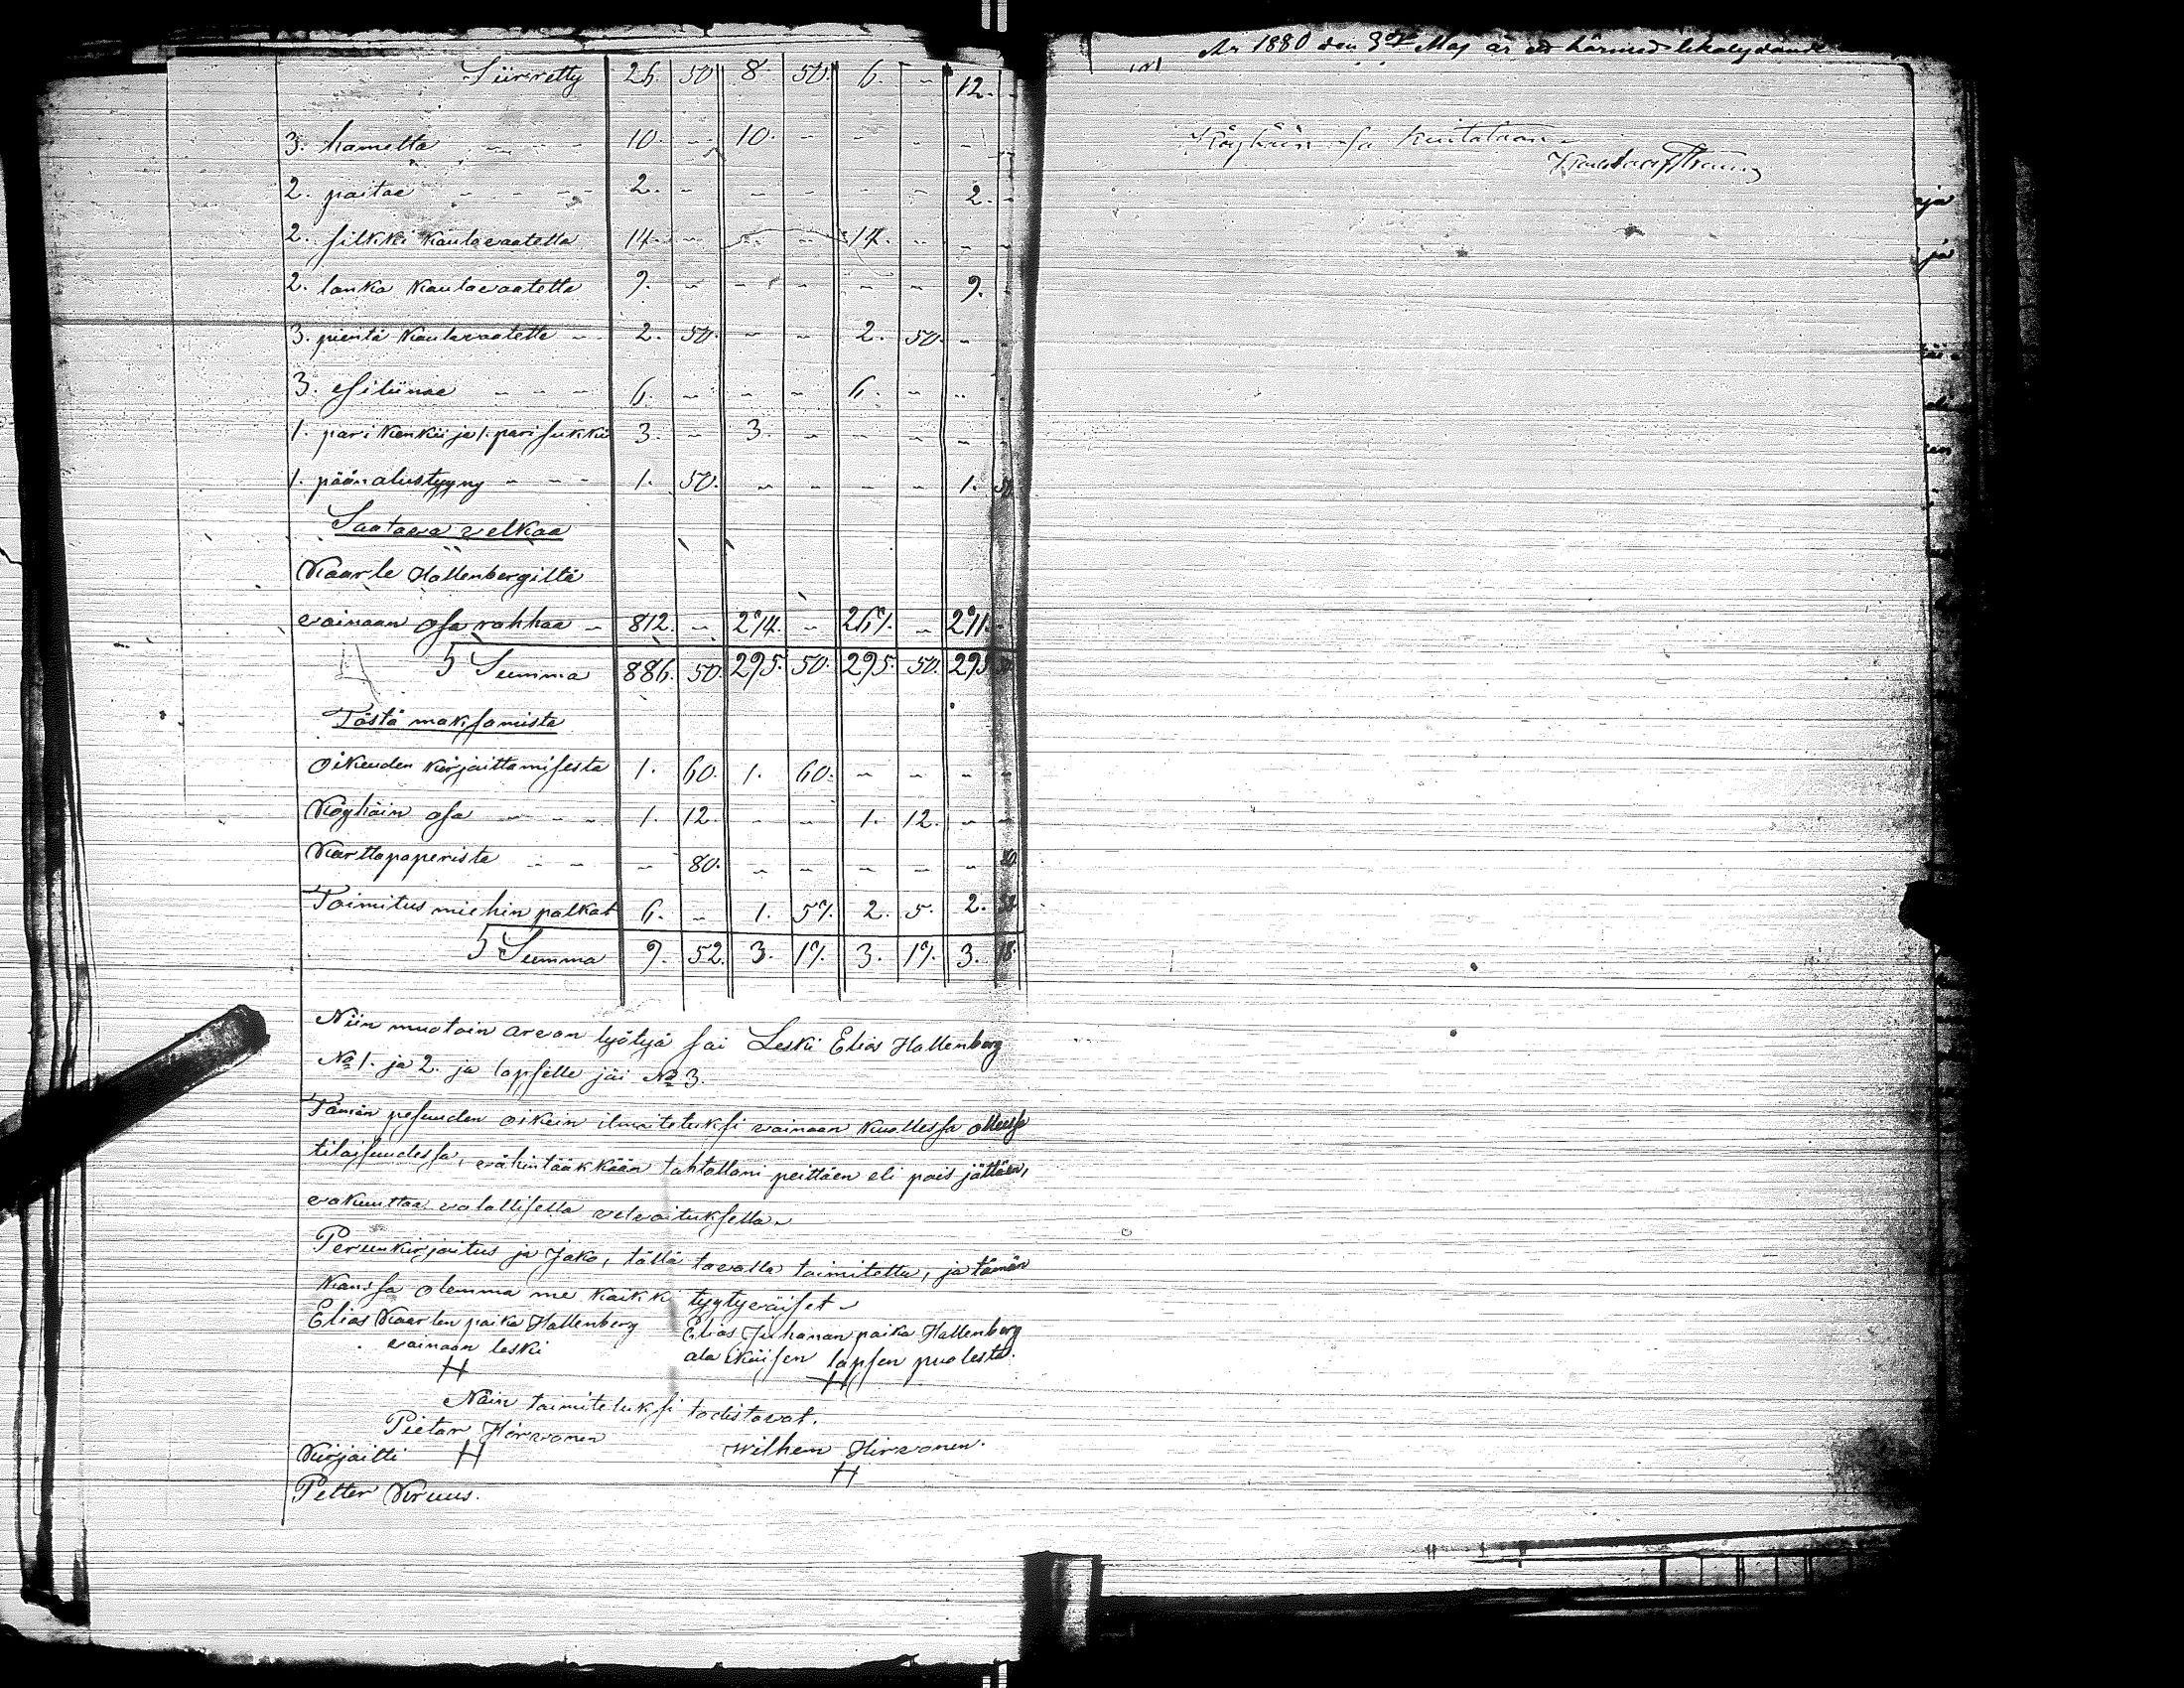 Siirretty 26. 50. 8. 50. 6. - 12. -
3. hametta - - - 10. - 10. - - - - -
2. paitaa - - - - 2. - - - - - 2. -
2. silkki kaulavaatetta 14. - - - 14. - - -
2. lanka kaulavaatetta 9. - - - - - 9.
3. pientä kaulavaatetta - 2. 50. - - 2. 50. -
3. esiliinaa - - - 6. - - - 6. - -
1. pari kenkii ja 1. pari sukkii 3. - 3. - - - - -
1. päänalustyyny - - - 1. 50. - - - - 1. 50.
Saatava velkaa
Kaarle Hallenbergiltä
vainaan osa rahhaa - 812. - 274. - 267. - 271. -
Summa 886. 50. 295. 50. 295. 50. 295. 50.
Tästä maksamista
Oikeuden kirjoittamisesta 1. 60. 1. 60. - - - -
Köyhäin osa - - - 1. 12. - - 1. 12. - -
Karttapaperista - - - 80. - - - - - 80.
Toimitus miehin palkat 6. - 1. 57. 2. 5. 2. 38.
Summa 9. 52. 3. 17. 3. 17. 3. 18.
Niin muotoin arvan lyötyä sai Leski Elias Hallenberg
No 1. ja 2. ja lapselle jäi No 3.
Tämän pesuuden oikein ilmoitetuksi vainaan kuollessa ollessa
tilaisuudessa, vähintääkkään tahtallani peittäen eli pois jättäen,
vakuuttaa valallisella velvoituksella
Perunkirjoitus ja Jako, tällä tavalla toimitettu, ja tämän
kanssa olemma me kaikki tyytyväiset
Elias Kaarlen poika Hallenberg Elias Juhanan poika Hallenberg
vainaan leski ala ikäisen lapsen puolesta.
Näin toimitetuksi todistavat.
Pietar Hirvonen Wilhem Hirvonen.
Kirjoitti
Petter Kruus.
Ar 1880 den 3dje Maj är ett härmed likalydande
Köyhäin osa kuitataan